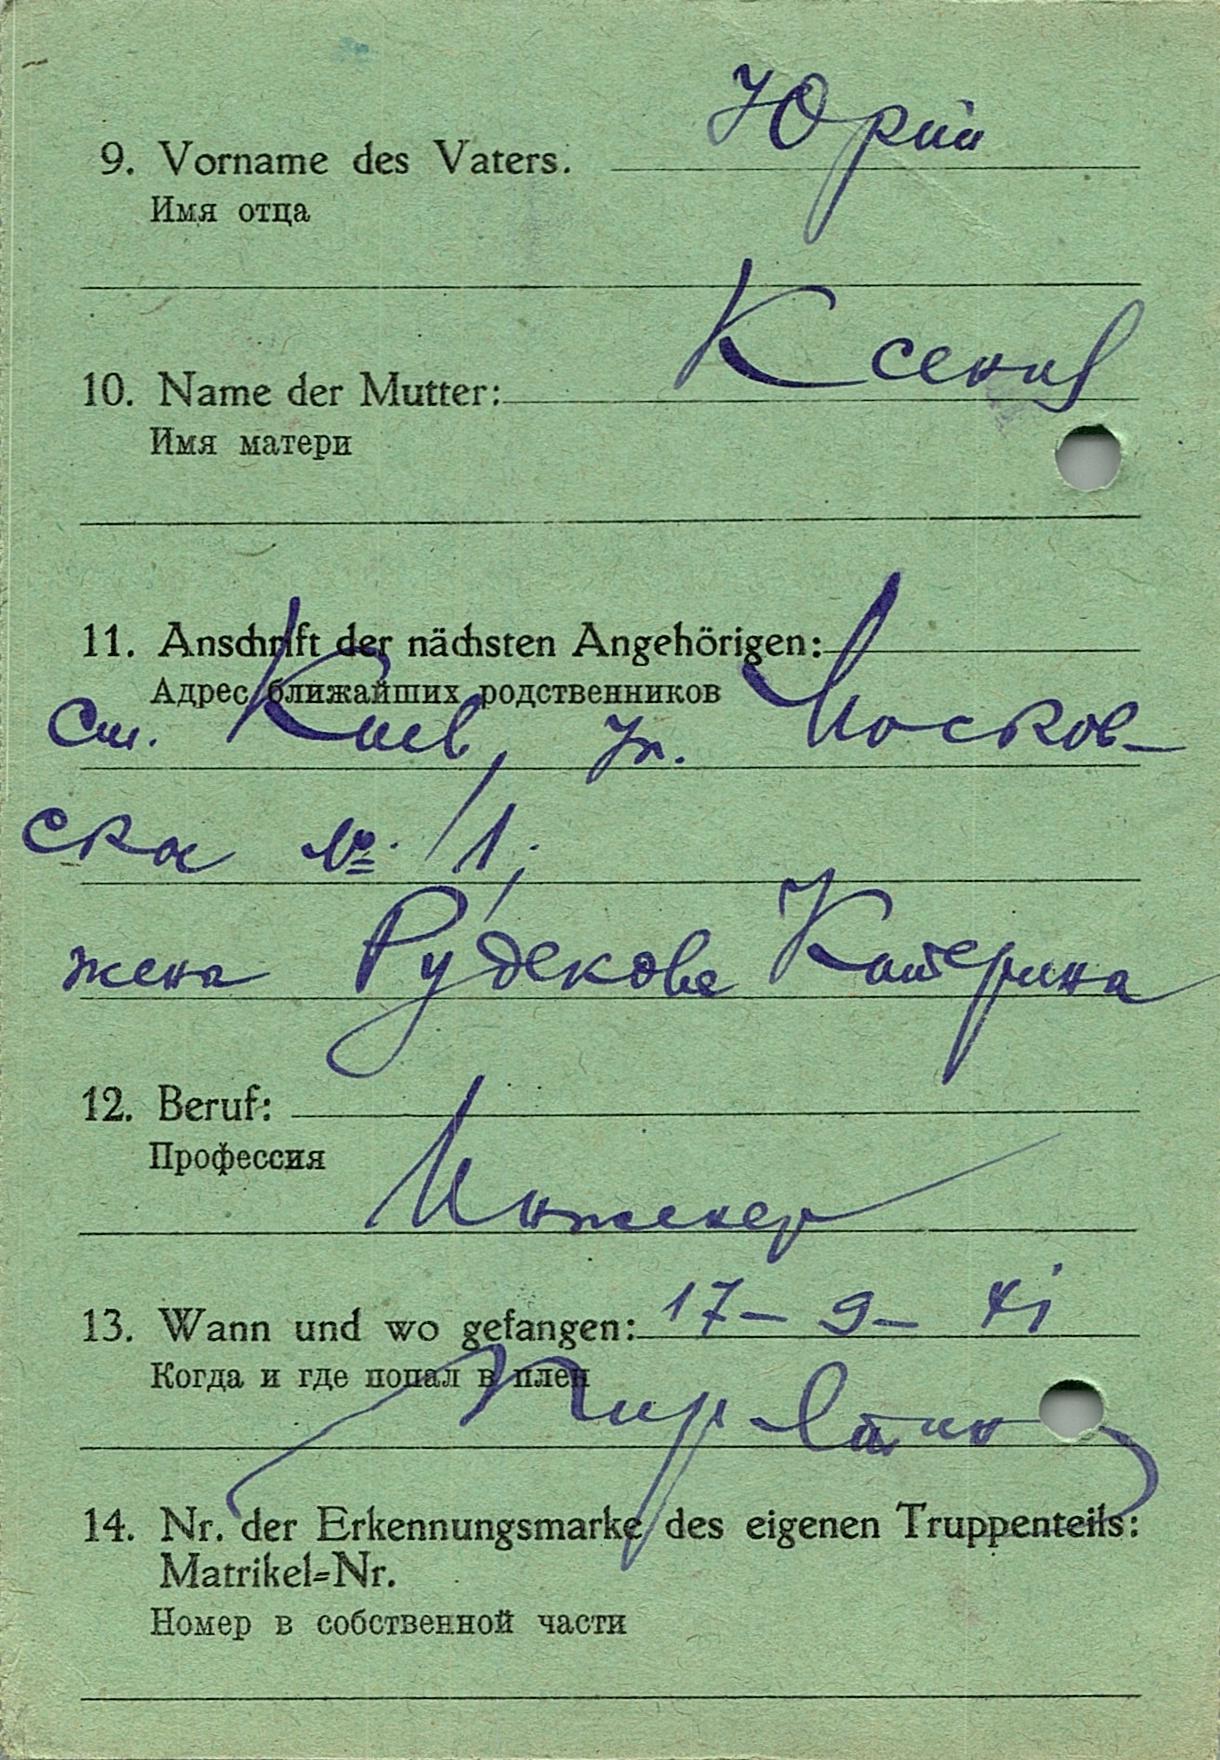 9. Vorname des Vaters. Юрий
Имя отца
10. Name der Mutter: Ксения
Имя матери
11. Anschrift der nächsten Angehörigen:
Адрес ближайших родственников
ст. Киев, ул. Москов-
ска № 11,
жена Рудекова Катерина
12. Beruf:
Профессия
Инженер
13. Wann und wo gefangen: 17–9–41
Когда и где попал в плен
Пирятин
14. Nr. der Erkennungsmarke des eigenen Truppenteils:
Matrikel-Nr.
Номер в собственной части